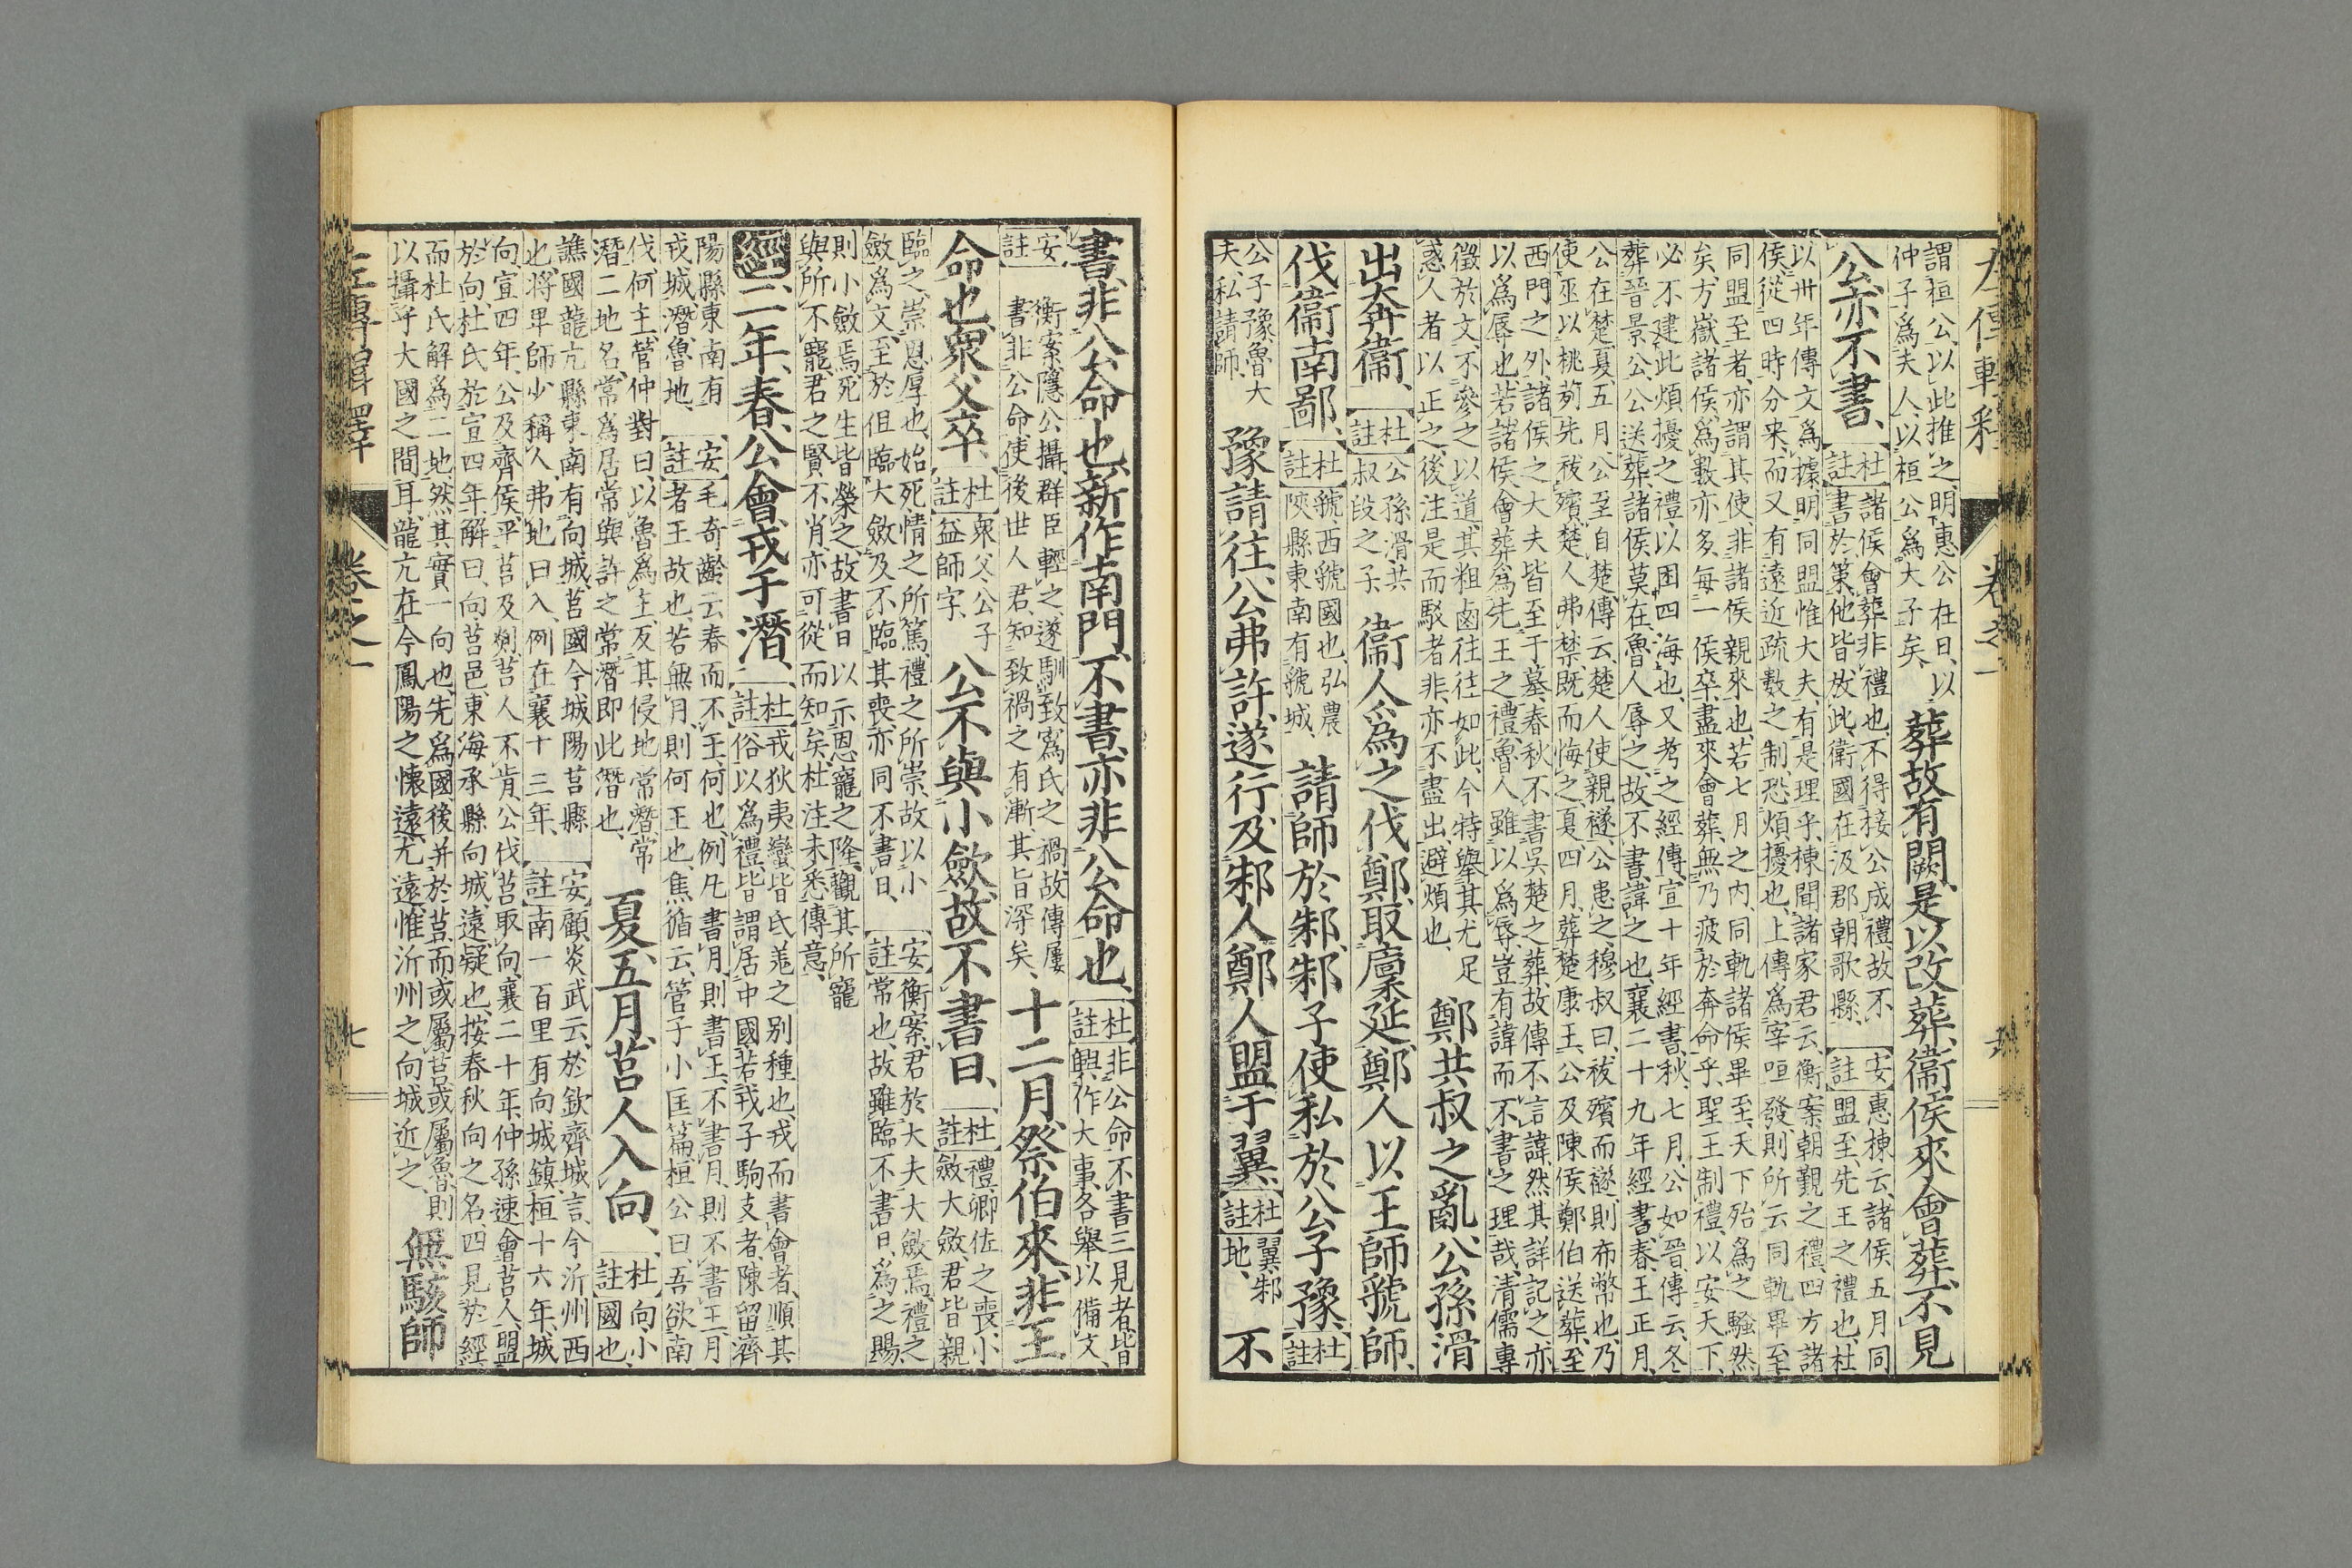 左傳輯釋 卷之一
謂桓公、以此推之、明惠公在日、以
仲子爲夫人、以桓公爲大子矣、
葬故有闕、是以改葬、衛侯來會葬、不見
公、亦不書、
杜註
諸侯會葬、非禮也、不得接公成禮、故不
書於策、他皆放此、衛國在汲郡朝歌縣、
安註
惠棟云、諸侯五月同
盟至、先王之禮也、杜
以卅年傳文爲據、明同盟惟大夫、有是理乎、棟聞諸家君云、衡案朝覲之禮、四方諸
侯、從四時分來、而又有遠近疏數之制、恐煩擾也、上傳爲宰咺發、則所云同軌畢至
同盟至者、亦謂其使、非諸侯親來也、若七月之內、同軌諸侯畢至、天下殆爲之騷然
矣、方嶽諸侯、爲數亦多、每一侯卒、盡來會葬、無乃疲於奔命乎、聖王制禮、以安天下、
必不建此煩擾之禮、以困四海也、又考之經傳、宣十年經書、秋、七月、公如晉、傳云、冬
葬晉景公、公送葬、諸侯莫在、魯人辱之、故不書、諱之也、襄二十九年經書、春、王正月、
公在楚、夏、五月、公至自楚、傳云、楚人使親襚、公患之、穆叔曰、祓殯而襚、則布幣也、乃
使巫以桃茢先祓殯、楚人弗禁、既而悔之、夏四月、葬楚康王、公及陳侯鄭伯送葬、至
西門之外、諸侯之大夫、皆至于墓、春秋不書吳楚之葬、故傳不言諱、然其詳記之、亦
以爲辱也、若諸侯會葬、爲先王之禮、魯人雖以爲辱、豈有諱而不書之理哉、清儒專
徵於文、不參之以道、其粗鹵往往如此、今特舉其尤足
惑人者、以正之、後注是而駁者非、亦不盡出、避煩也、
鄭共叔之亂、公孫滑
出奔衛、
杜註
公孫滑、共
叔段之子、
衛人爲之伐鄭、取廩延、鄭人以王師虢師、
伐衛南鄙、
杜註
虢、西虢國也、弘農
陝縣東南有虢城、
請師於邾、邾子使私於公子豫、
杜註
公子豫、魯大
夫、私請師、
豫請往、公弗許、遂行、及邾人鄭人盟于翼、
杜註
翼、邾
地、
不
書、非公命也、新作南門、不書、亦非公命也、
杜註
非公命不書三見者、皆
興作大事、各舉以備文、
安註
衡案、隱公攝、群臣輕之、遂馴致寪氏之禍、故傳屢
書非公命、使後世人君、知致禍之有漸、其旨深矣、
十二月、祭伯來、非王
命也、衆父卒、
杜註
衆父、公子
益師字、
公不與小斂、故不書日、
杜註
禮、卿佐之喪、小
斂大斂、君皆親
臨之、崇恩厚也、始死情之所篤、禮之所崇、故以小
斂爲文、至於但臨大斂、及不臨其喪、亦同不書日、
安註
衡案、君於大夫、大斂焉、禮之
常也、故雖臨不書日、爲之賜、
則小斂焉、死生皆榮之、故書日以示恩寵之隆、觀其所寵
與所不寵、君之賢不肖、亦可從而知矣、杜注未悉傳意、
經二年、春、公會戎于潛、
杜註
戎狄夷蠻、皆氐羌之別種也、戎而書會者、順其
俗以爲禮、皆謂居中國、若戎子駒支者、陳留濟
陽縣東南有
戎城、潛、魯地、
安註
毛奇齡云、春而不王、何也、例凡書月、則書王、不書月、則不書王、月
者王故也、若無月、則何王也、焦循云、管子小匡篇、桓公曰、吾欲南
伐、何主、管仲對曰、以魯爲主、反其侵地常潛、常
潛二地名、常爲居常與許之常、潛即此潛也、
夏、五月、莒人入向、
杜註
向、小
國也、
譙國龍亢縣東南有向城、莒國、今城陽莒縣
也、將卑師少稱人、弗地曰入、例在襄十三年、
安註
顧炎武云、於欽齊城言、今沂州西
南一百里有向城鎮、桓十六年、城
向、宣四年、公及齊侯平莒及郯、莒人不肯、公伐莒取向、襄二十年、仲孫速會莒人、盟
於向、杜氏於宣四年、解曰、向、莒邑、東海承縣向城、遠、疑也、按春秋向之名、四見於經、
而杜氏解爲二地、然其實一向也、先爲國、後并於莒、而或屬莒或屬魯、則
以攝乎大國之間耳、龍亢在今鳳陽之懷遠、尤遠、惟沂州之向城近之、
無駭師
左傳輯釋 卷之一 七